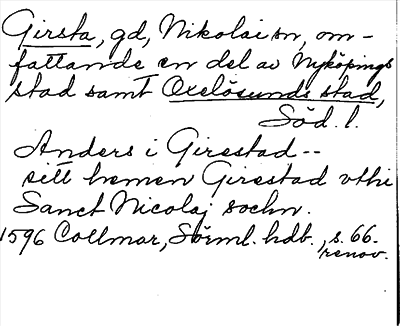 Girsta, gd, Nikolai sn, om-
fattande en del av Nyköpings
stad samt Oxelösunds stad,
Söd. l.
Anders i Girestad --
sitt hemen Girestad vthi
Sanct Nicolaj sochn.
1596 Collmar, Sörml. hdb., s. 66.
renov.